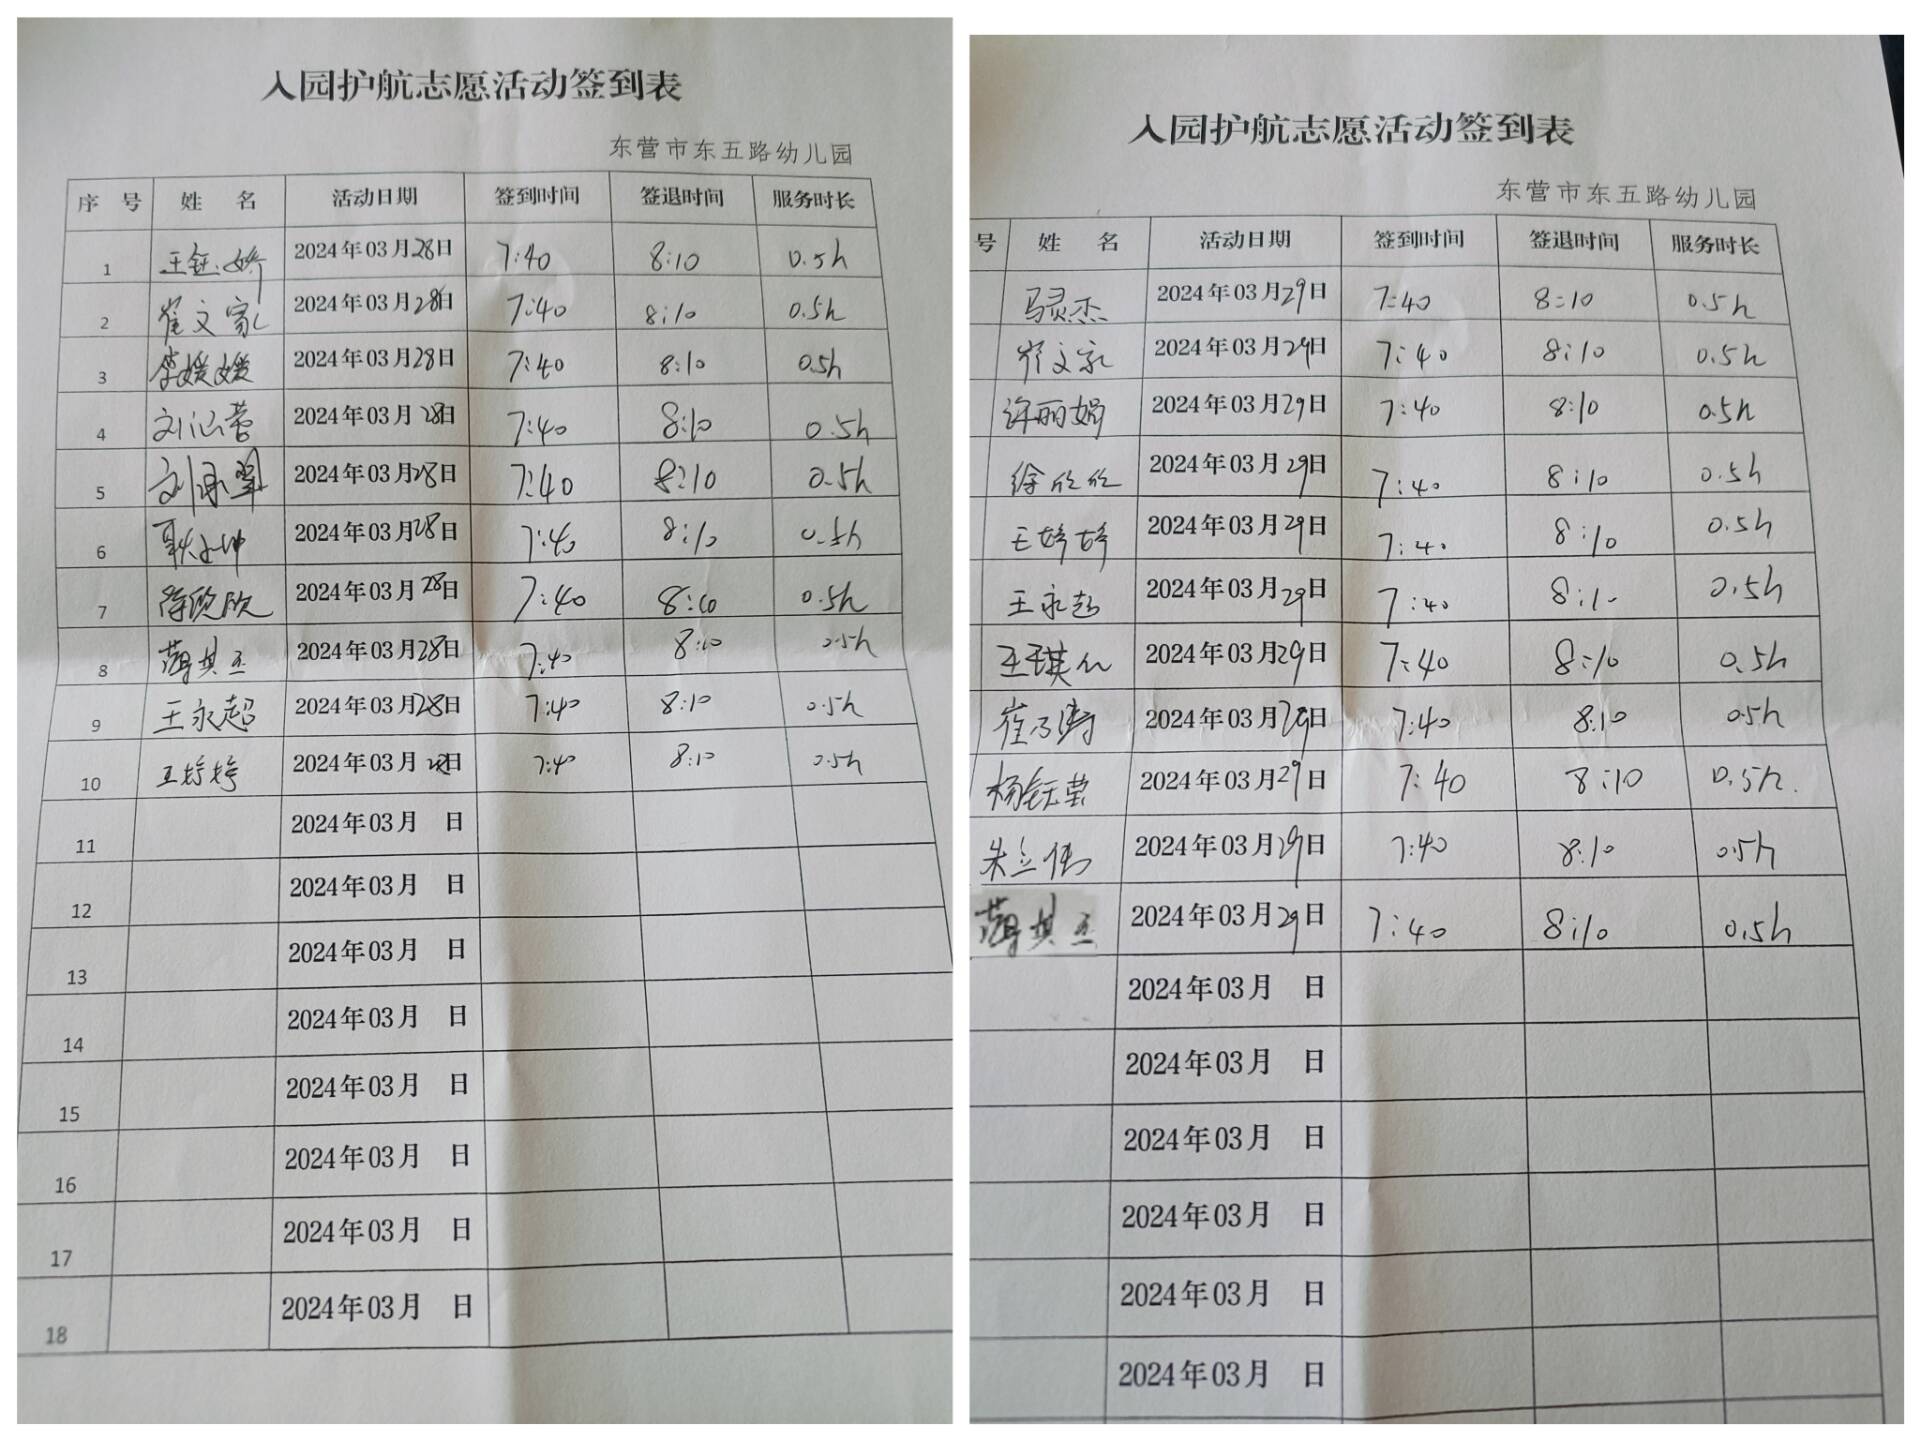 入园护航志愿活动签到表
东营市东五路幼儿园
序 号 姓 名 活动日期 签到时间 签退时间 服务时长
1 王钰娇 2024年03月28日 7:40 8:10 0.5h
2 崔文家 2024年03月28日 7:40 8:10 0.5h
3 李媛媛 2024年03月28日 7:40 8:10 0.5h
4 刘涵蕾 2024年03月28日 7:40 8:10 0.5h
5 刘 2024年03月28日 7:40 8:10 0.5h
6 耿 坤 2024年03月28日 7:40 8:10 0.5h
7 欣 2024年03月28日 7:40 8:10 0.5h
8 薄其玉 2024年03月28日 7:40 8:10 0.5h
9 王永超 2024年03月28日 7:40 8:10 0.5h
10 王婷婷 2024年03月28日 7:40 8:10 0.5h
11 2024年03月 日
12 2024年03月 日
13 2024年03月 日
14 2024年03月 日
15 2024年03月 日
16 2024年03月 日
17 2024年03月 日
18 2024年03月 日
入园护航志愿活动签到表
东营市东五路幼儿园
号 姓 名 活动日期 签到时间 签退时间 服务时长
马灵杰 2024年03月29日 7:40 8:10 0.5h
崔文家 2024年03月29日 7:40 8:10 0.5h
许丽娟 2024年03月29日 7:40 8:10 0.5h
徐欣欣 2024年03月29日 7:40 8:10 0.5h
王婷婷 2024年03月29日 7:40 8:10 0.5h
王永超 2024年03月29日 7:40 8:10 0.5h
王琪 2024年03月29日 7:40 8:10 0.5h
崔乃涛 2024年03月29日 7:40 8:10 0.5h
杨钰莹 2024年03月29日 7:40 8:10 0.5h.
朱立伟 2024年03月29日 7:40 8:10 0.5h
薄其玉 2024年03月29日 7:40 8:10 0.5h
2024年03月 日
2024年03月 日
2024年03月 日
2024年03月 日
2024年03月 日
2024年03月 日